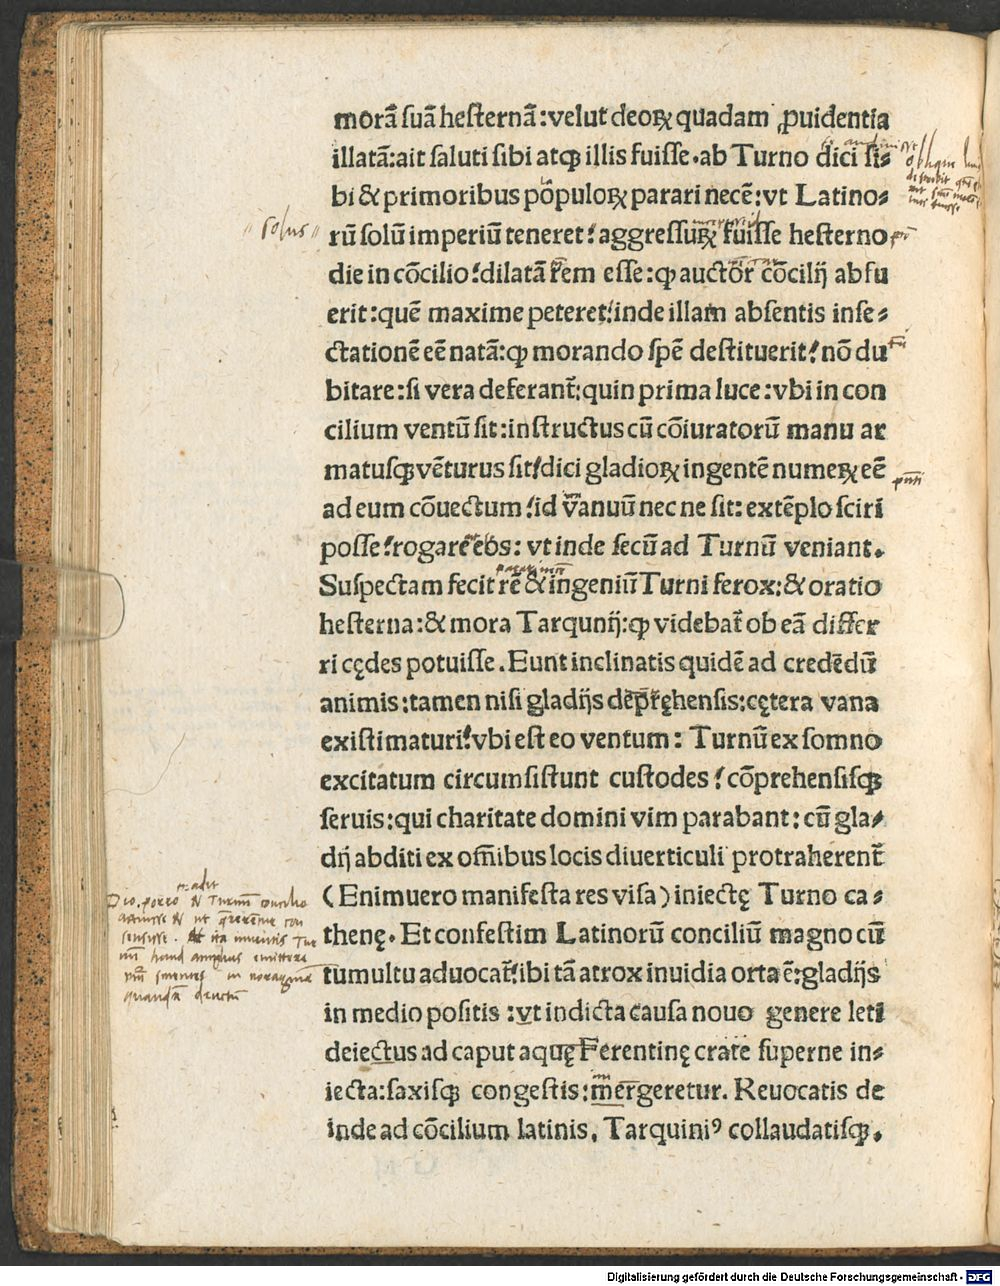 morã suã hesternã: velut deoꝝ quadam ꝓuidentia
illatã: ait saluti sibi atqꝫ illis fuisse. ab Turno dici si-
bi & primoribus populoꝝ parari necẽ: vt Latino-
rũ solũ imperiũ teneret: aggressuꝝ fuisse hesterno
die in cõcilio: dilatã rem esse: ꝙ auctor cõcilij absu
erit: quẽ maxime peteret: inde illam absentis inse-
ctationẽ eẽ natã: ꝙ morando spẽ destituerit: nõ du
bitare: si vera deferant̃: quin prima luce: vbi in con
cilium ventũ sit: instructus cũ cõiuratorũ manu ar
matusqꝫ vẽturus sit: dici gladioꝝ ingentẽ numeꝝ eẽ
ad eum cõuectum: id vanuũ nec ne sit: extẽplo sciri
posse: rogare eos: vt inde secũ ad Turnũ veniant.
Suspectam fecit rẽ & ingeniũ Turni ferox: & oratio
hesterna: & mora Tarqunij: ꝙ videbat̃ ob eã differ
ri cędes potuisse. Eunt inclinatis quidẽ ad credẽdũ
animis: tamen nisi gladijs depręhensis: cętera vana
existimaturi: vbi est eo ventum: Turnũ ex somno
excitatum circumsistunt custodes: cõprehensisqꝫ
seruis: qui charitate domini vim parabant: cũ gla-
dij abditi ex om̃ibus locis diuerticuli protraherent̃
(Enimuero manifesta res visa) iniectę Turno ca-
thenę. Et confestim Latinorũ conciliũ magno cũ
tumultu aduocat̃: ibi tã atrox inuidia orta ẽ: gladijs
in medio positis: vt indicta causa nouo genere leti
deiectus ad caput aquę Ferentinę crate superne in-
iecta: saxisqꝫ congestis: mergeretur. Reuocatis de
inde ad cõcilium latinis, Tarquiniꝰ collaudatisqꝫ.
solus
Digitalisierung gefördert durch die Deutsche Forschungsgemeinschaft - DFG